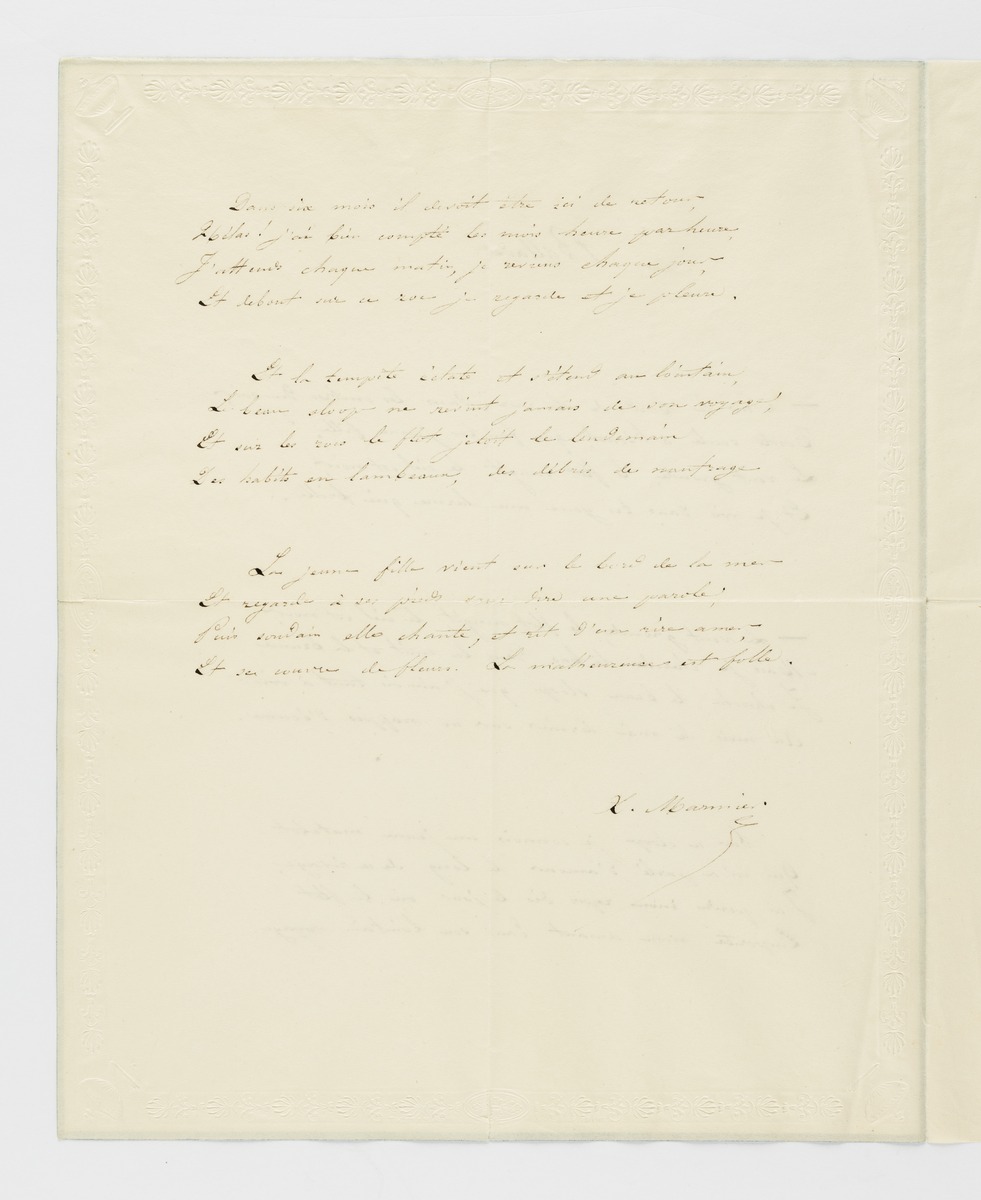 Dans six mois il devoit être ici de retour,
Hélas! j'ai bien compté les mois heure par heure,
J'attends chaque matin, je reviens chaque jour,
Et debout sur ce roc je regarde et je pleure.
Et la tempête éclate et s'étend au lointain,
Le beau sloop ne revint jamais de son voyage,
Et sur les rocs le flot jetoit le lendemain
Des habits en lambeaux, des débris de naufrage
La jeune fille vient sur le bord de la mer
Et regarde à ses pieds sans dire une parole;
Puis soudain elle chante, et rit d'un rire amer,
Et se couvre de fleurs. La malheureuse est folle.
X. Marmier.